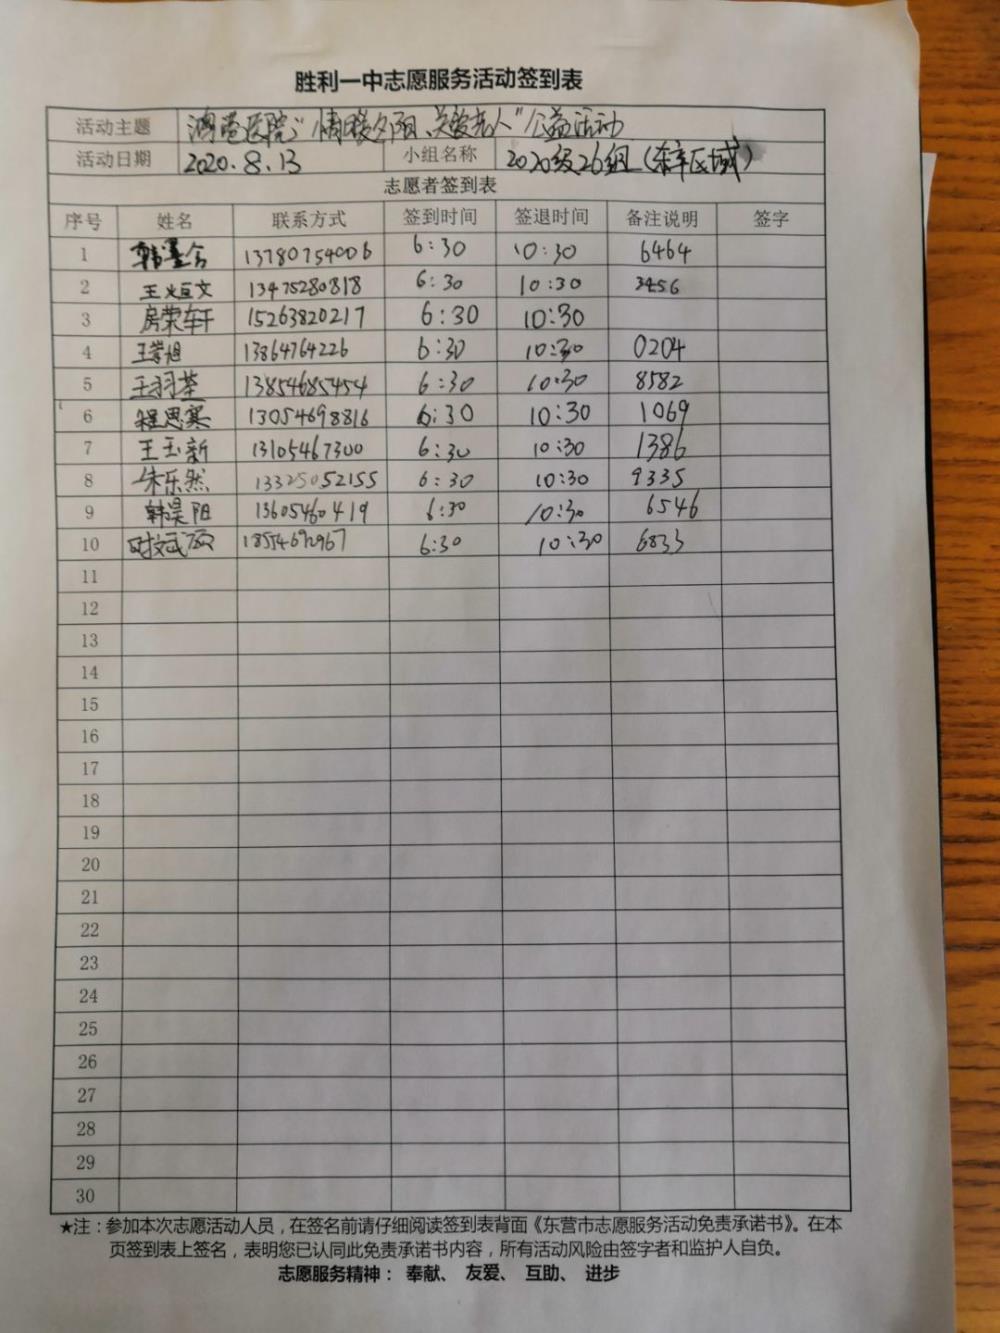 胜利一中志愿服务活动签到表
活动主题 医院"情暖夕阳、关爱老人"公益活动
活动日期 2020.8.13 小组名称 2020级26组(辛区域)
志愿者签到表
序号 姓名 联系方式 签到时间 签退时间 备注说明 签字
1 韩墨含 13780754006 6:30 10:30 6464
2 王烜文 13475280818 6:30 10:30 3456
3 房荣轩 15263820217 6:30 10:30
4 王崇旭 13864764226 6:30 10:30 0204
5 王羽荃 13854685454 6:30 10:30 8582
6 程思寒 13054698816 6:30 10:30 1069
7 王玉新 13105467300 6:30 10:30 1386
8 朱乐然 13325052155 6:30 10:30 9335
9 韩昊阳 13605460419 6:30 10:30 6546
10 时斌 6:30 10:30 6833
11
12
13
14
15
16
17
18
19
20
21
22
23
24
25
26
27
28
29
30
★注:参加本次志愿活动人员,在签名前请仔细阅读签到表背面《东营市志愿服务活动免责承诺书》。在本
页签到表上签名,表明您已认同此免责承诺书内容,所有活动风险由签字者和监护人自负。
志愿服务精神: 奉献、 友爱、 互助、 进步